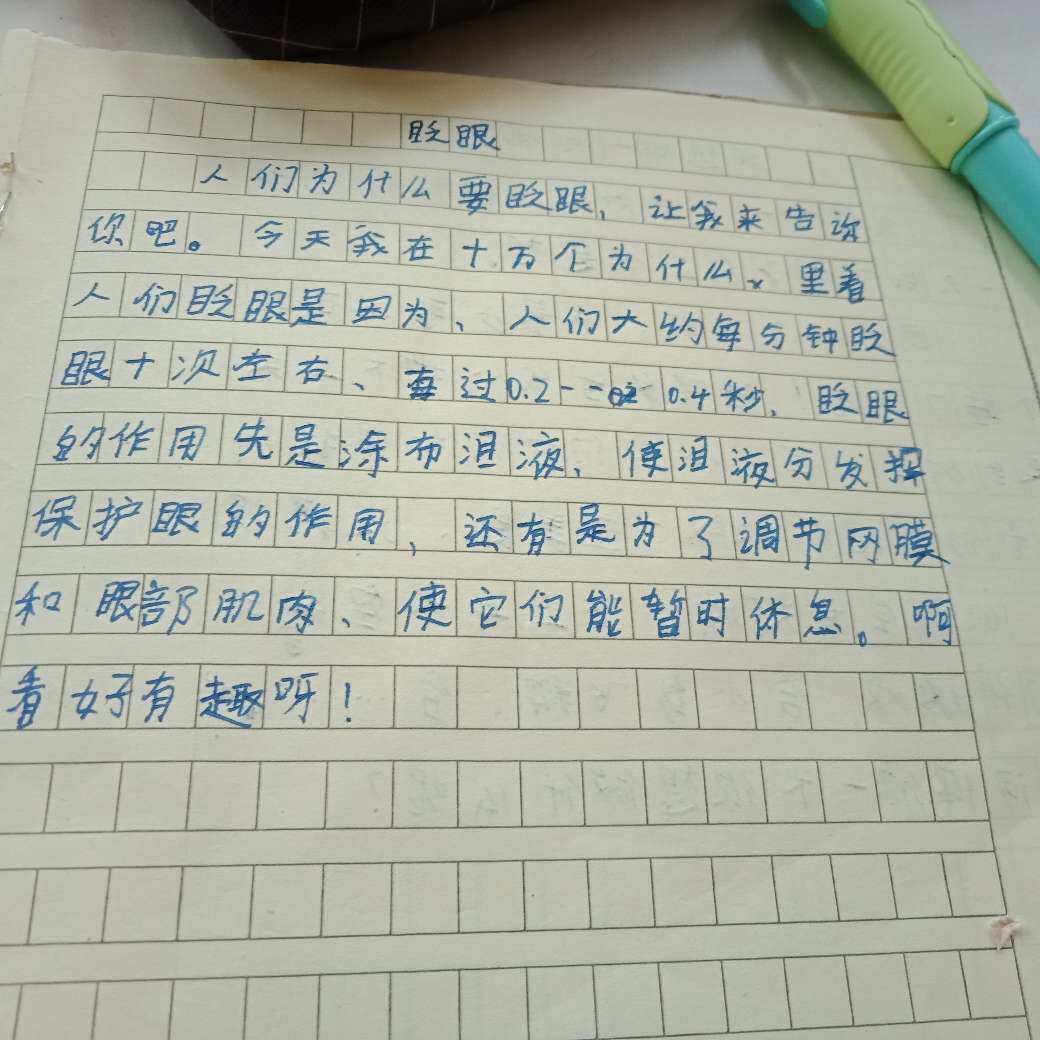 眨眼
人们为什么要眨眼,让我来告诉
你吧。今天我在十万个为什么、里看
人们眨眼是因为、人们大约每分钟眨
眼十次左右、每过0.2--0.4秒,眨眼
的作用先是涂布泪液、使泪液分发挥
保护眼的作用,还有是为了调节网膜
和眼部肌肉、使它们能暂时休息。啊
看好有趣呀!